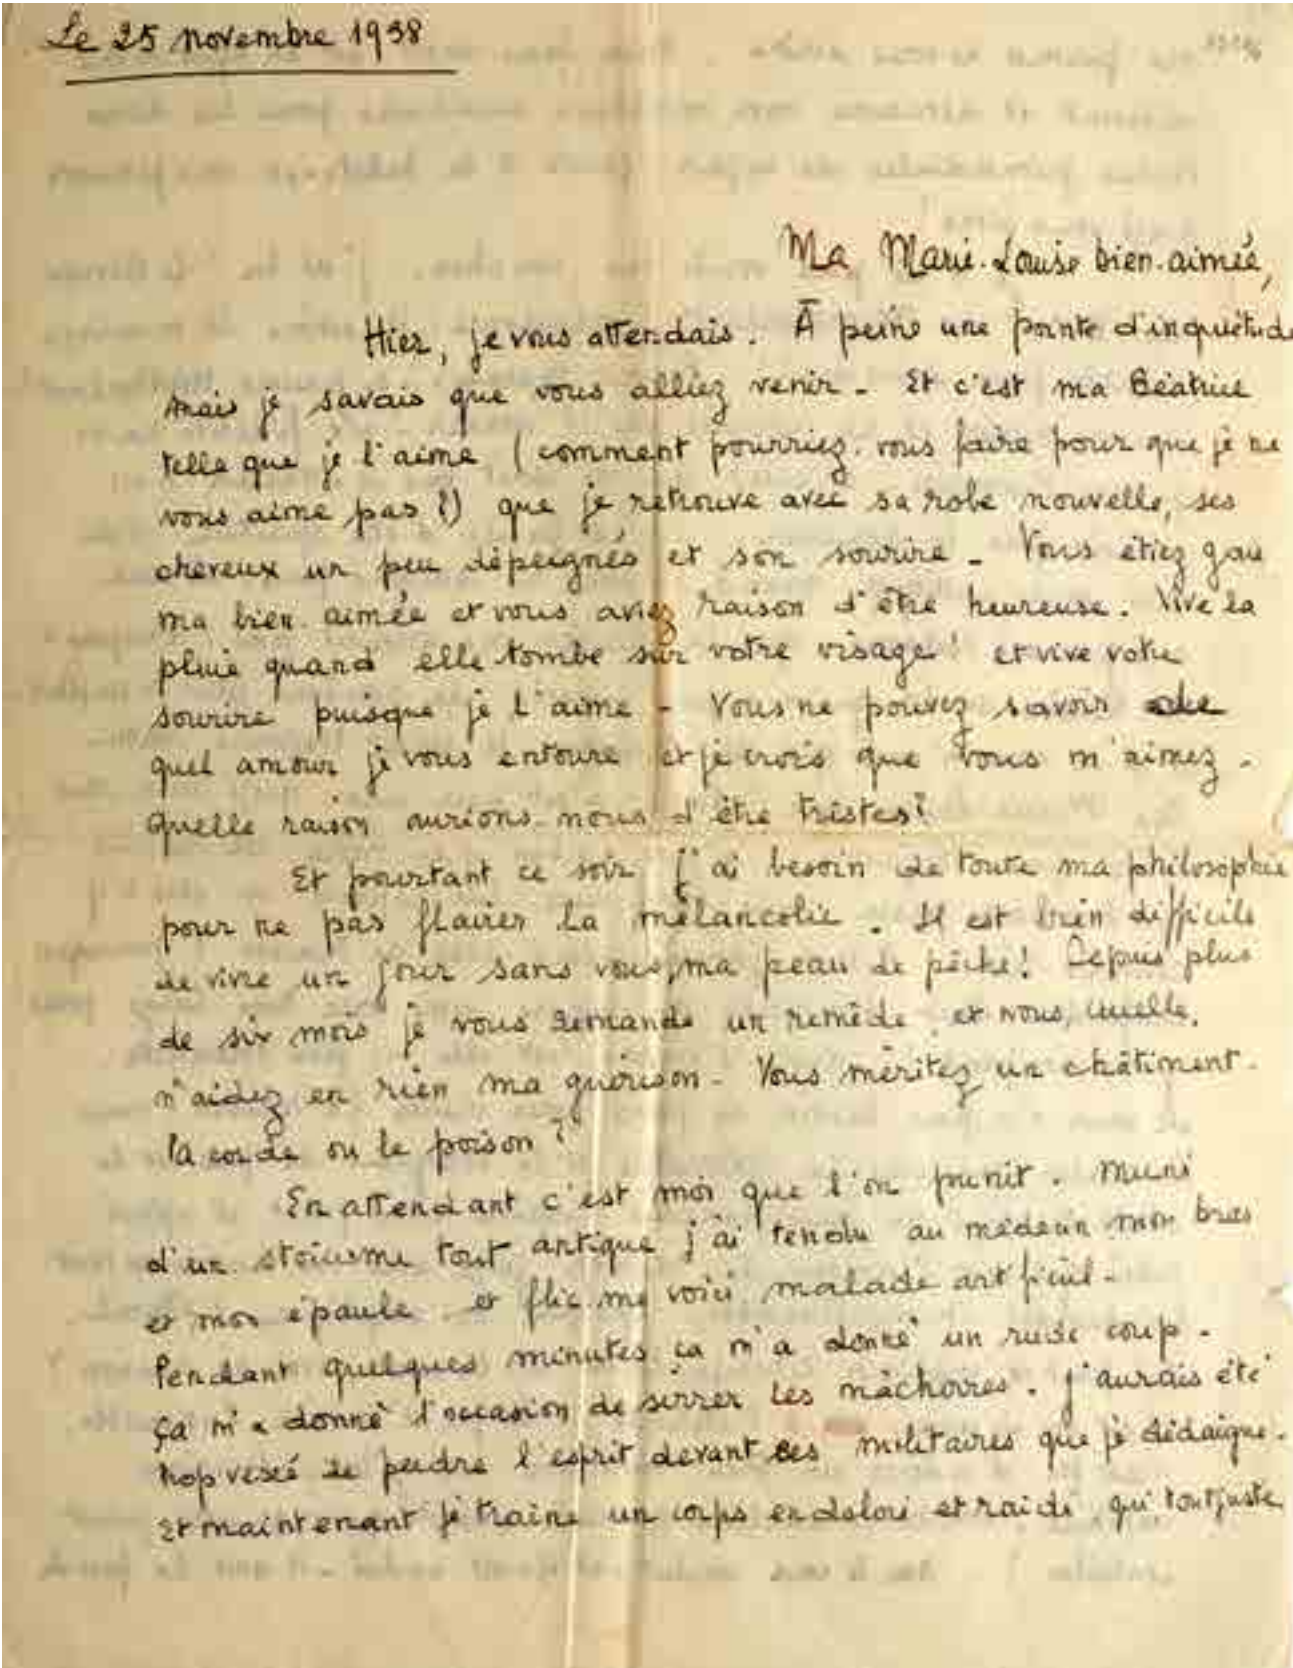 Le 25 novembre 1938
Ma Marie-Louise bien-aimée,
Hier, je vous attendais. À peine une pointe d'inquiétude
mais je savais que vous alliez venir - Et c'est ma Béatrice
telle que je l'aime (comment pourriez-vous faire pour que je ne
vous aime pas ?) que je retrouve avec sa robe nouvelle, ses
cheveux un peu dépeignés et son sourire - Vous étiez gaie
ma bien aimée et vous aviez raison d'être heureuse. Vive la
pluie quand elle tombe sur votre visage ! et vive votre
sourire puisque je l'aime - Vous ne pouvez savoir de
quel amour je vous entoure et je crois que vous m'aimez -
Quelle raison aurions-nous d'être tristes ?
Et pourtant ce soir j'ai besoin de toute ma philosophie
pour ne pas flairer la mélancolie. Il est bien difficile
de vivre un jour sans vous, ma peau de pêche ! Depuis plus
de six mois je vous demande un remède et vous, cruelle,
n'aidez en rien ma guérison - Vous méritez un châtiment -
la corde ou le poison ?
En attendant c'est moi que l'on punit. Muni
d'un stoïcisme tout antique j'ai tendu au médecin mon bras
et mon épaule et flic me voici malade artificiel -
Pendant quelques minutes ça m'a donné un rude coup -
Ça m'a donné l'occasion de serrer les mâchoires. J'aurais été
trop vexé de perdre l'esprit devant ces militaires que je dédaigne -
Et maintenant je traine un corps endolori et raidi qui tout juste